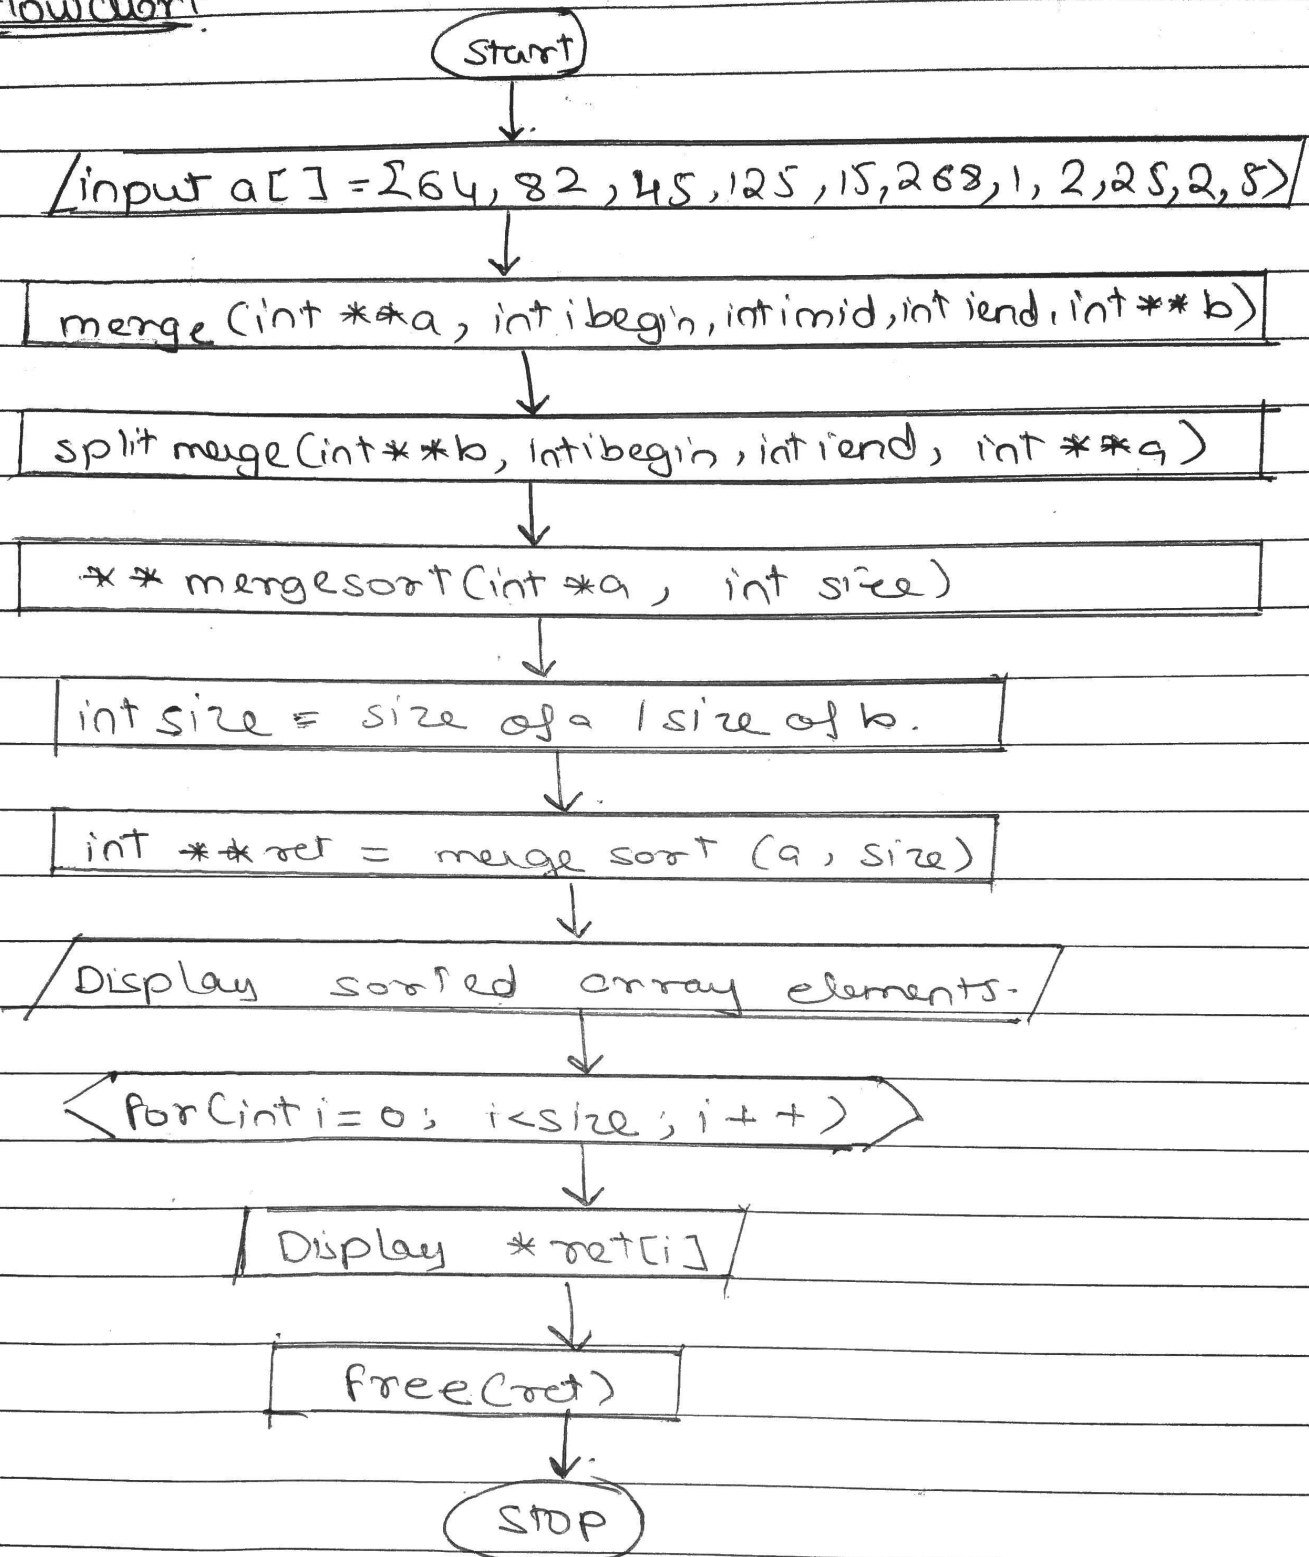 Flowchart.
Start
input a[ ] = {64, 82, 45, 125, 15, 268, 1, 2, 25, 2, 5}
merge (int **a, int ibegin, int imid, int iend, int ** b)
split merge (int **b, int ibegin, int iend, int **a)
** mergesort (int *a, int size)
int size = size of a / size of b.
int **ret = merge sort (a, size)
Display sorted array elements.
for (int i = 0; i < size; i + +)
Display * ret[i]
free (ret)
Stop